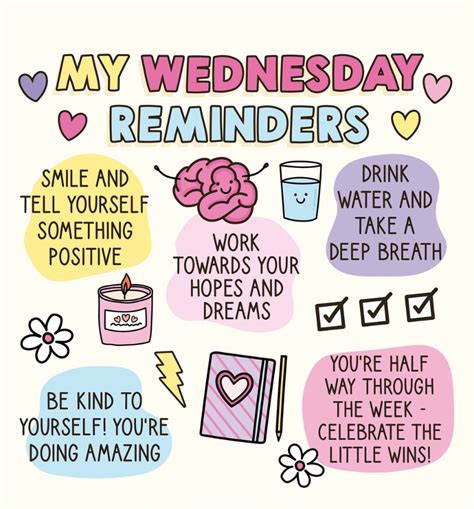 MY WEDNESDAY
REMINDERS
SMILE AND
TELL YOURSELF
SOMETHING
POSITIVE
DRINK
WATER AND
TAKE A
DEEP BREATH
WORK
TOWARDS YOUR
HOPES AND
DREAMS
BE KIND TO
YOURSELF! YOU'RE
DOING AMAZING
YOU'RE HALF
WAY THROUGH
THE WEEK -
CELEBRATE THE
LITTLE WINS!